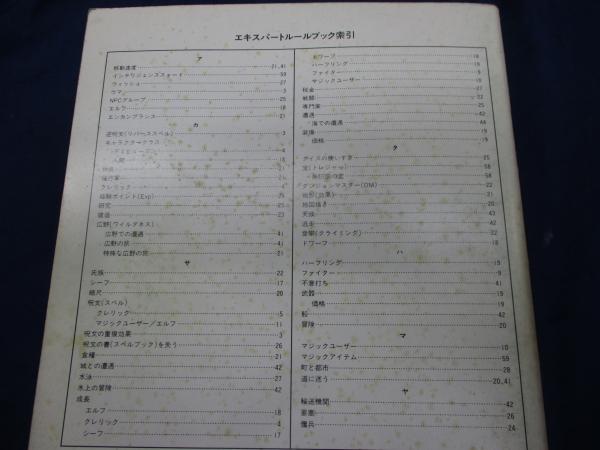 エキスパートルールブック索引
ア
移動速度 21,41
インテリジェンスソード 59
ウィッシュ 27
ウマ 3
NPCグループ 25
エルフ 18
エンカンブランス 21
カ
逆呪文(リバーススペル) 3
キャラクタークラス
人間 18
クレリック 4
経験ポイント(Exp)
研究 25
建造 23
広野(ウィルダネス)
広野での遭遇 41
広野の旅 41
特殊な広野の旅 21
サ
氏族 22
シーフ 17
縮尺 20
呪文(スペル)
クレリック 5
マジックユーザー/エルフ 11
呪文の重複効果 3
呪文の書(スペルブック)を失う 26
食糧 21
城との遭遇 42
水泳 27
水上の冒険 42
成長
エルフ 18
クレリック 4
シーフ 17
ドワーフ 18
ハーフリング 19
ファイター 9
マジックユーザー 10
税金 27
戦闘 22
専門家 25
遭遇 42
海での遭遇 44
装備 19
価格 19
タ
ダイスの使いすぎ 25
宝(トレジャー) 58
58
ダンジョンマスター(DM) 22
地図描き 20
天候 43
逃走 42
登攀(クライミング) 22
ドワーフ 18
ハ
ハーフリング 19
ファイター 9
不意打ち 41
武器 19
価格 19
船 42
冒険 20
マ
マジックユーザー 10
マジックアイテム 59
町と都市 28
道に迷う 20,41
ヤ
輸送機関 42
要塞 26
傭兵 24